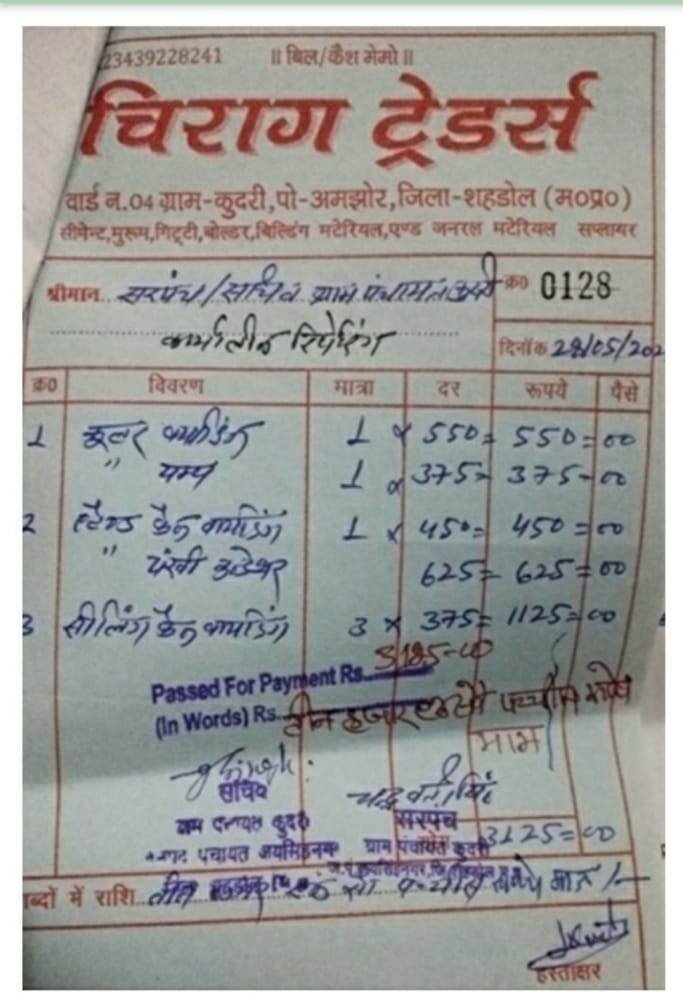 23439228241 ॥ बिल/कैश मेमो ॥
चिराग ट्रेडर्स
वार्ड न.04 ग्राम-कुदरी,पो-अमझोर,जिला-शहडोल (म०प्र०)
सीमेन्ट,मुरूम,गिट्टी,बोल्डर,बिल्डिंग मटेरियल,एण्ड जनरल मटेरियल सप्लायर
श्रीमान सरपंच/सचिव ग्राम पंचायत क्र० 0128
दिनाँक 28/05/202
क्र० विवरण मात्रा दर रूपये पैसे
1 कूलर 1 x 550= 550=00
" पम्प 1 x 375= 375=00
2 स्टैण्ड फैन 1 x 450= 450=00
" पंखी 625= 625=00
3 सीलिंग फैन 3 x 375= 1125=00
Passed For Payment Rs. 3125=00
(In Words) Rs. तीन हजार एक सौ पच्चीस रूपये
मात्र
सचिव
सरपंच
ग्राम पंचायत कुदरी ग्राम पंचायत कुदरी
3125=00
शब्दों में राशि तीन हजार एक सौ पच्चीस रूपये मात्र /-
हस्ताक्षर